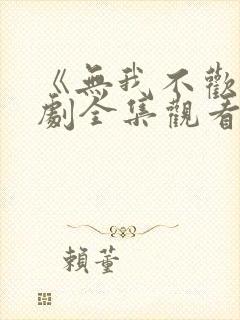 《無我不歡
劇全集觀看
賴董